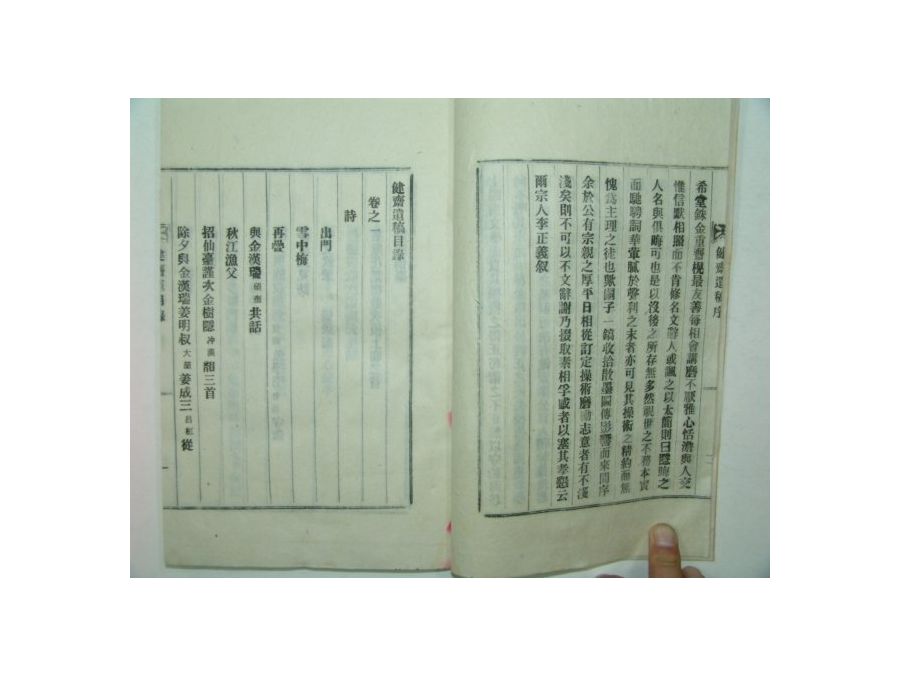 健齋遺稿序
希堂銖金重曹梘最友善每相會講磨不厭雅心恬澹與人交
惟信默相照而不肯修名文辭人或諷之以太簡則曰隱晦之
人名與俱晦可也是以沒後之所存無多然視世之不務本實
而馳騁詞華葷膩於聲利之末者亦可見其操術之精約而無
愧爲主理之徒也歟嗣子一鎬收拾散墨圖傳影響而來問序
余於公有宗親之厚平日相從訂定操術磨勵志意者有不淺
淺矣則不可以不文辭謝乃掇取素相孚感者以塞其孝懇云
爾宗人李正義叙
健齋遺稿目錄
卷之一
詩
出門
雪中梅
再疊
與金漢瑞碩奎共話
秋江漁父
招仙臺謹次金樹隱冲漢韻三首
除夕與金漢瑞姜明叔大榮姜成三呂紅從